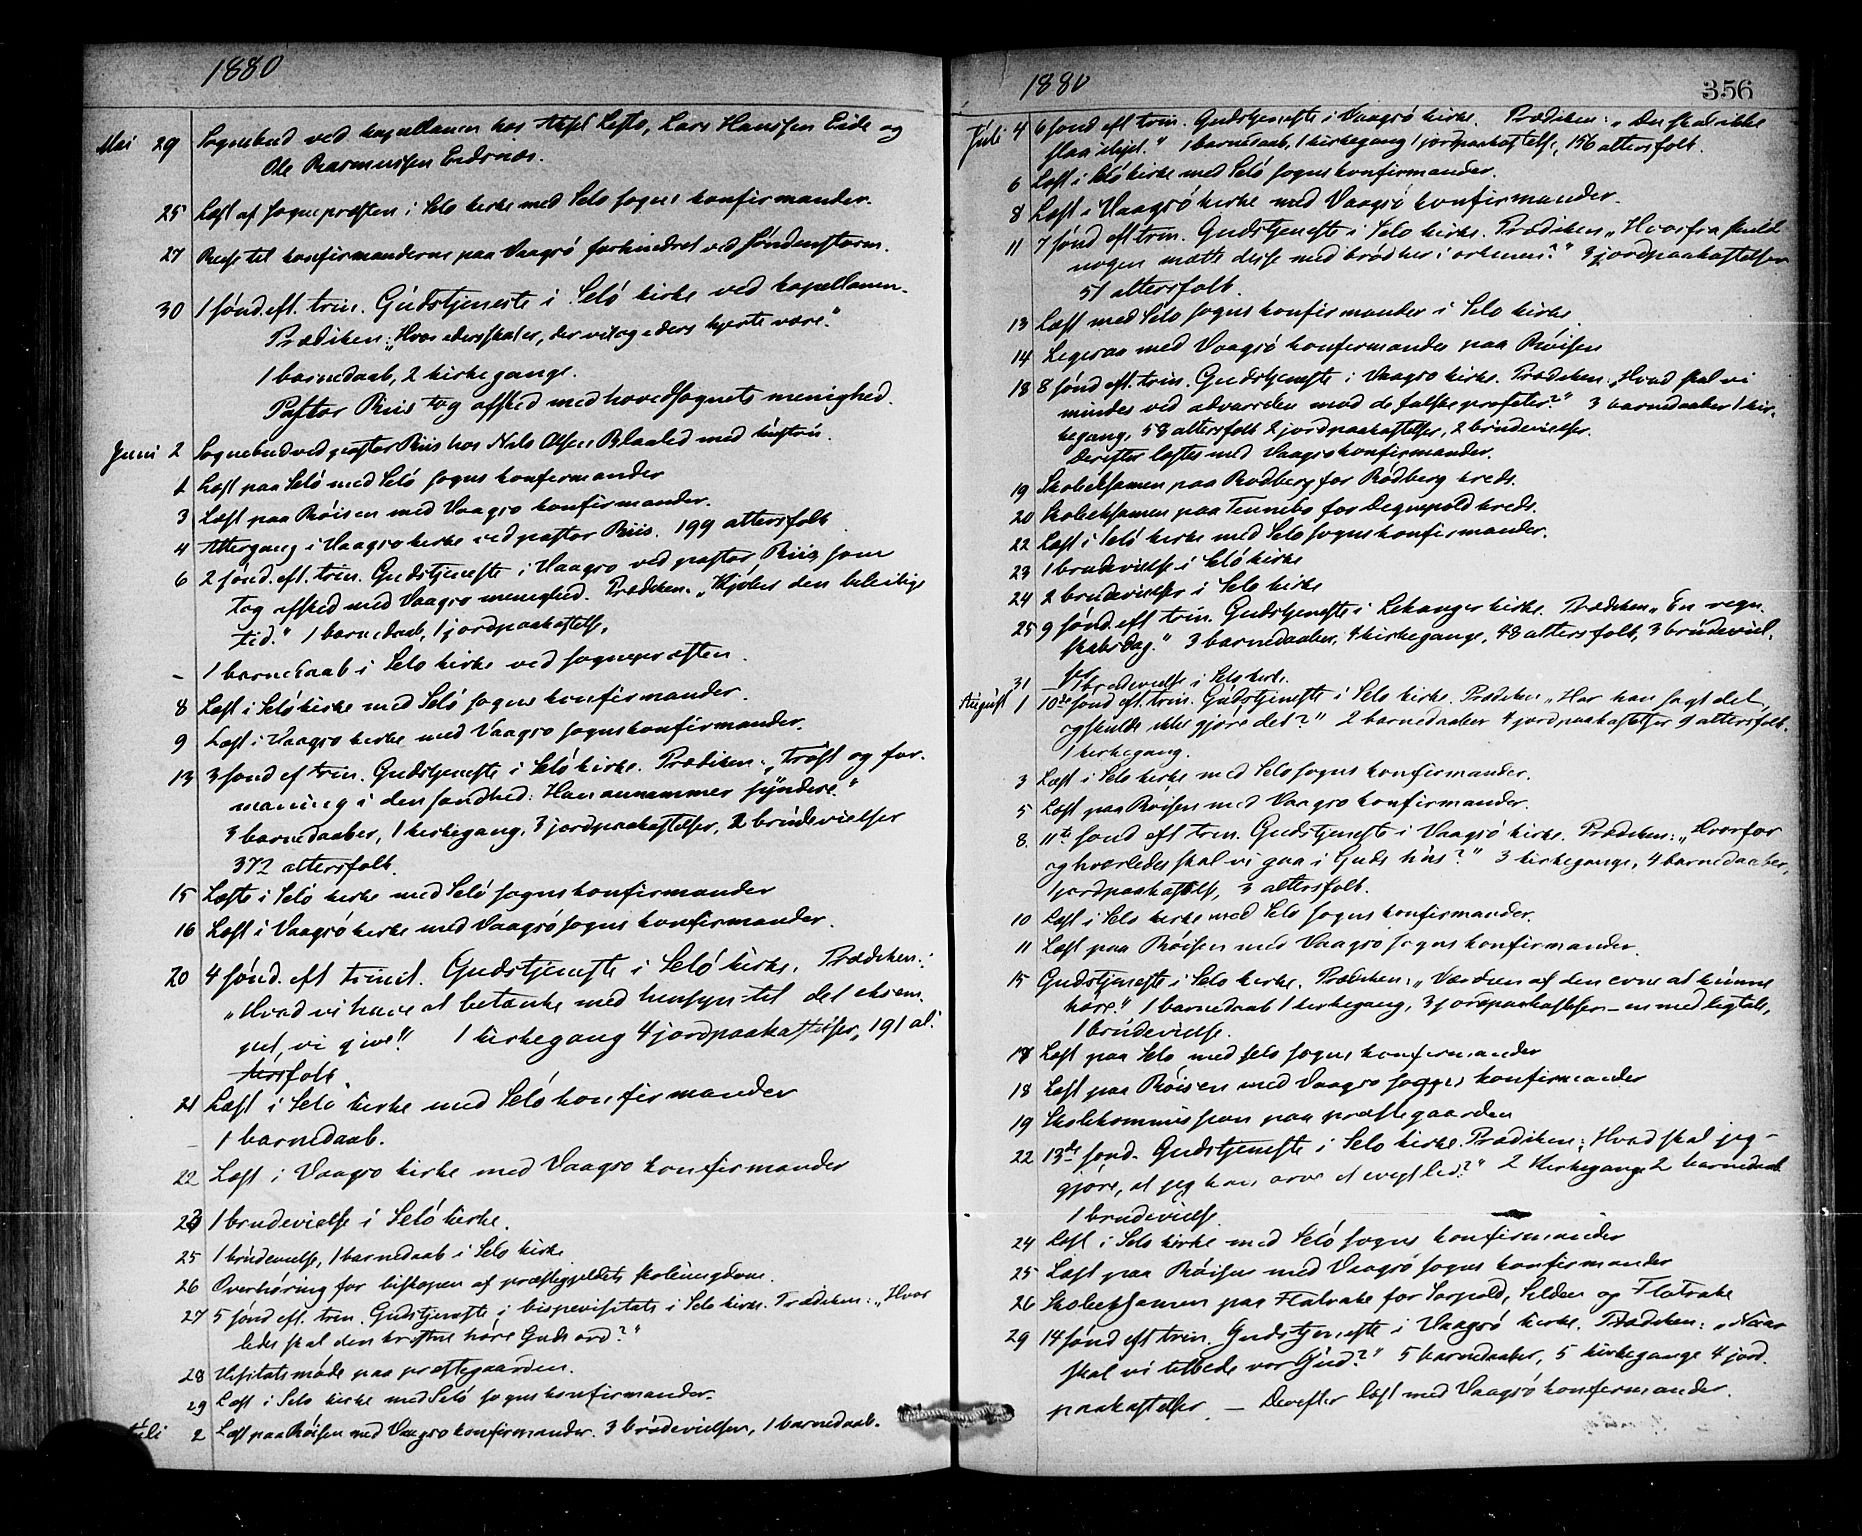 1880
Mai 29 Sognebud ved kapellanen hos Lars Hanssen Eide og
Ole Rasmussen Endsnæs.
25 Læst af sognepræsten i Selö kirke med Selo sogns konfirmander.
27 Reise til konfirmanderne paa Vaagsö forhindret ved söndenstorm.
30 1 sönd. eft. trin. Gudstjeneste i Selö kirke ved kapellanen.
Prædiken: „Hvor eders skat er, der vil og eders hjerte være."
1 barnedaab, 2 kirkegange.
Pastor Riis tog afsked med hovedsognets menighed.
Juni 2 Sognebud ved pastor Riis hos Nils Olsen Blaalid med hustru.
1 Læst paa Selö med Selö sogns konfirmander
3 Læst paa Röisen med Vaagsö konfirmander.
4 Altergang i Vaagsö kirke ved pastor Riis. 199 altersfolk.
6 2 sönd. eft. trin. Gudstjeneste i Vaagsö ved pastor Riis, som
tog afsked med Vaagsö menighed. Prædiken. „Kjöber den beleilige
tid." 1 barnedaab, 1 jordpaakastelse,
– 1 barnedaab i Selo kirke ved sognepræsten.
8 Læst i Selö kirke med Selö sogns konfirmander.
9 Læst i Vaagsö kirke med Vaagsö sogns konfirmander.
13 3 sönd ef trin. Gudstjeneste i Selö kirke. Prædiken: „Tröst og for-
maning i den sandhed: Han annammer syndere."
3 barnedaaber, 1 kirkegang, 3 jordpaakastelser, 2 brudevielser
372 altersfolk.
15 Læste i Selö kirke med Selö sogns konfirmander
16 Læst i Vaagsö kirke med Vaagsö sogns konfirmander.
20 4 sönd. eft trinit. Gudstjeneste i Selö kirke. Prædiken:
„Hvad vi have at betænke med hensyn til det eksem-
pel, vi give". 1 kirkegang 4 jordpaakastelser, 191 al-
tersfolk.
21 Læst i Selö kirke med Selö konfirmander
– 1 barnedaab.
22 Læst i Vaagsö kirke med Vaagsö konfirmander
23 1 brudevielse i Selö kirke.
25 1 brudevielse, 1 barnedaab i Selo kirke
26 Overhöring for biskopen af præstegjeldets skoleungdom.
27 5 sönd eft. trin. Gudstjeneste i bispevisitats i Selo kirke. Prædiken: „Hvor
ledes skal den kristne höre Guds ord?"
28 Visitatsmöde paa præstegaarden.
29 Læst i Selo kirke med Selö sogns konfirmander.
Juli 2 Læst paa Röisen med Vaagsö konfirmander. 3 brudevielser, 1 barnedaab.
1880 356
Juli 4 6 sönd eft trin. Gudstjeneste i Vaagsö kirke. Prædiken: „Du skal ikke
slaa ihjel." 1 barnedaab, 1 kirkegang 1 jordpaakastelse, 156 altersfolk.
6 Læst i Selö kirke med Selö sogns konfirmander.
8 Læst i Vaagsö kirke med Vaagsö konfirmander.
11 7 sönd eft trin. Gudstjeneste i Selo kirke. Prædiken „Hvorfra skuld
nogen mætte disse med bröd her i örkenen?" 3 jordpaakastelser
51 altersfolk.
13 Læst med Selo sogns konfirmander i Selo kirke.
14 Ligesaa med Vaagsö konfirmander paa Röisen
18 8 sönd eft. trin. Gudstjeneste i Vaagsö kirke. Prædiken: „Hvad skal vi
mindes ved advarslen mod de falske profeter?" 3 barnedaaber 1 kir-
kegang, 58 altersfolk 2 jordpaakastelser, 2 brudevielser.
Derefter læstes med Vaagsö konfirmander.
19 Skoleeksamen paa Rödberg for Rödberg kreds.
20 Skoleeksamen paa Tennebö for Degnepold kreds.
22 Læst i Selö kirke med Selö sogns konfirmander.
23 1 brudevielse i Selö kirke
24 2 brudevielser i Selo kirke
25 9 sönd. eft trin. Gudstjeneste i Lekanger kirke. Prædiken „En regn-
skabsdag." 3 barnedaaber, 4 kirkegange, 48 altersfolk, 3 brudeviel-
ser
31 – 1 brudevielse i Selo kirke.
August 1 10de sönd eft. trin. Gudstjeneste i Selo kirke. Prædiken „Har han sagt det,
og skulde ikke gjöre det?" 2 barnedaaber 4 jordpaakastelser 9 altersfolk.
1 kirkegang.
3 Læst i Selo kirke med Selo sogns konfirmander.
5 Læst paa Röisen med Vaagsö konfirmander.
8. 11te sönd eft trin. Gudstjeneste i Vaagsö kirke. Prædiken: „Hvorfor
og hvorledes skal vi gaa i Guds hus?" 3 kirkegange, 4 barnedaaber,
1 jordpaakastelse, 3 altersfolk.
10 Læst i Selo kirke med Selo sogns konfirmander.
11 Læst paa Röisen med Vaagsö sogns konfirmander.
15 Gudstjeneste i Selo kirke. Prædiken: „Værdien af den evne at kunne
höre." 1 barnedaab 1 kirkegang, 3 jordpaakastelser – en med ligtale,
1 brudevielse.
17 Læst paa Selo med Selo sogns konfirmander
18 Læst paa Röisen med Vaagsö sogns konfirmander
19 Skolekommission paa præstegaarden
22 13de sönd. Gudstjeneste i Selo kirke. Prædiken: Hvad skal jeg
gjöre, at jeg kan arve et evigt liv?" 2 kirkegange 2 barnedaab
1 brudevielse.
24 Læst i Selo kirke med Selö sogns konfirmander
25 Læst paa Röisen med Vaagsö sogns konfirmander
26 Skoleeksamen paa Flatrake for Sarpold, Seldæ og Flatrake
29 14 sönd eft trin. Gudstjeneste i Vaagsö kirke. Prædiken: „Naar
skal vi tilbede vor Gud?" 5 barnedaaber, 5 kirkegange 4 jord-
paakastelser. – Derefter læst med Vaagsö konfirmander.